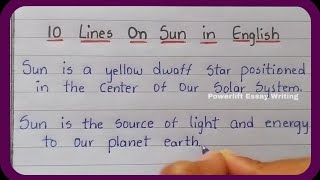 10 Lines On Sun in English
Sun is a yellow dwoff star positioned
in the center of our Solar System.
Powerlift Essay Writing
Sun is the source of light and energy
to our planet earth.